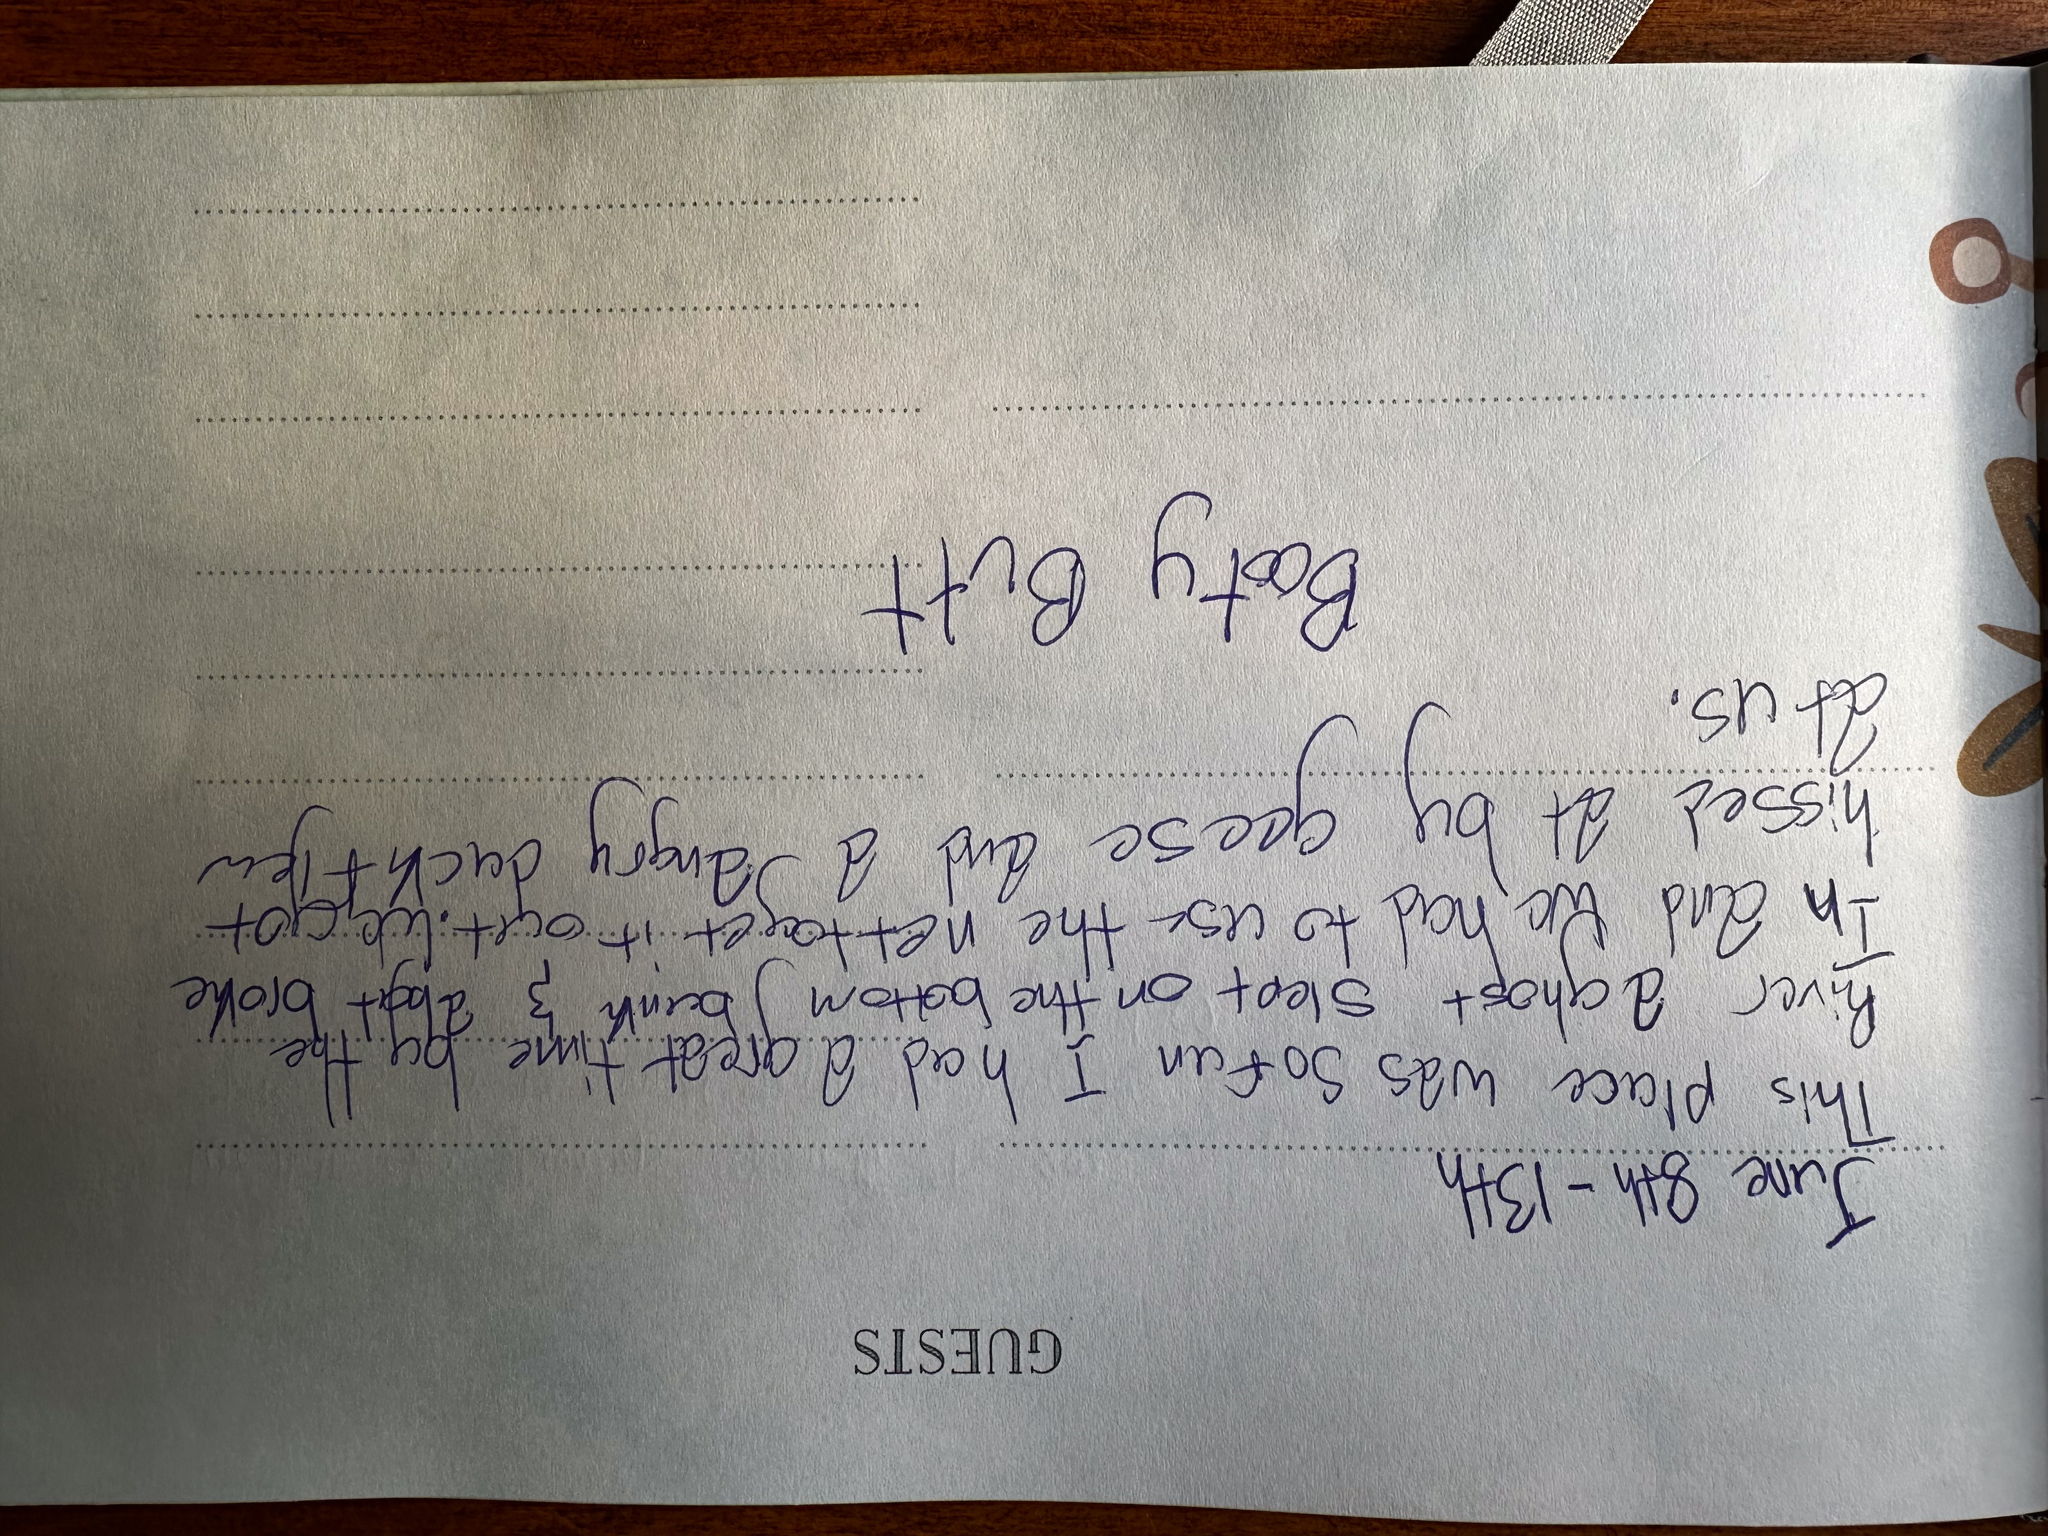 GUESTS
June 8th - 13th
This place was so fun I had a great time by the
River a ghost slept on the bottom bunk & a bat broke
In and We had to use the net to get it out. We got
hissed at by geese and a angry duck flew
at us.
Booty Butt